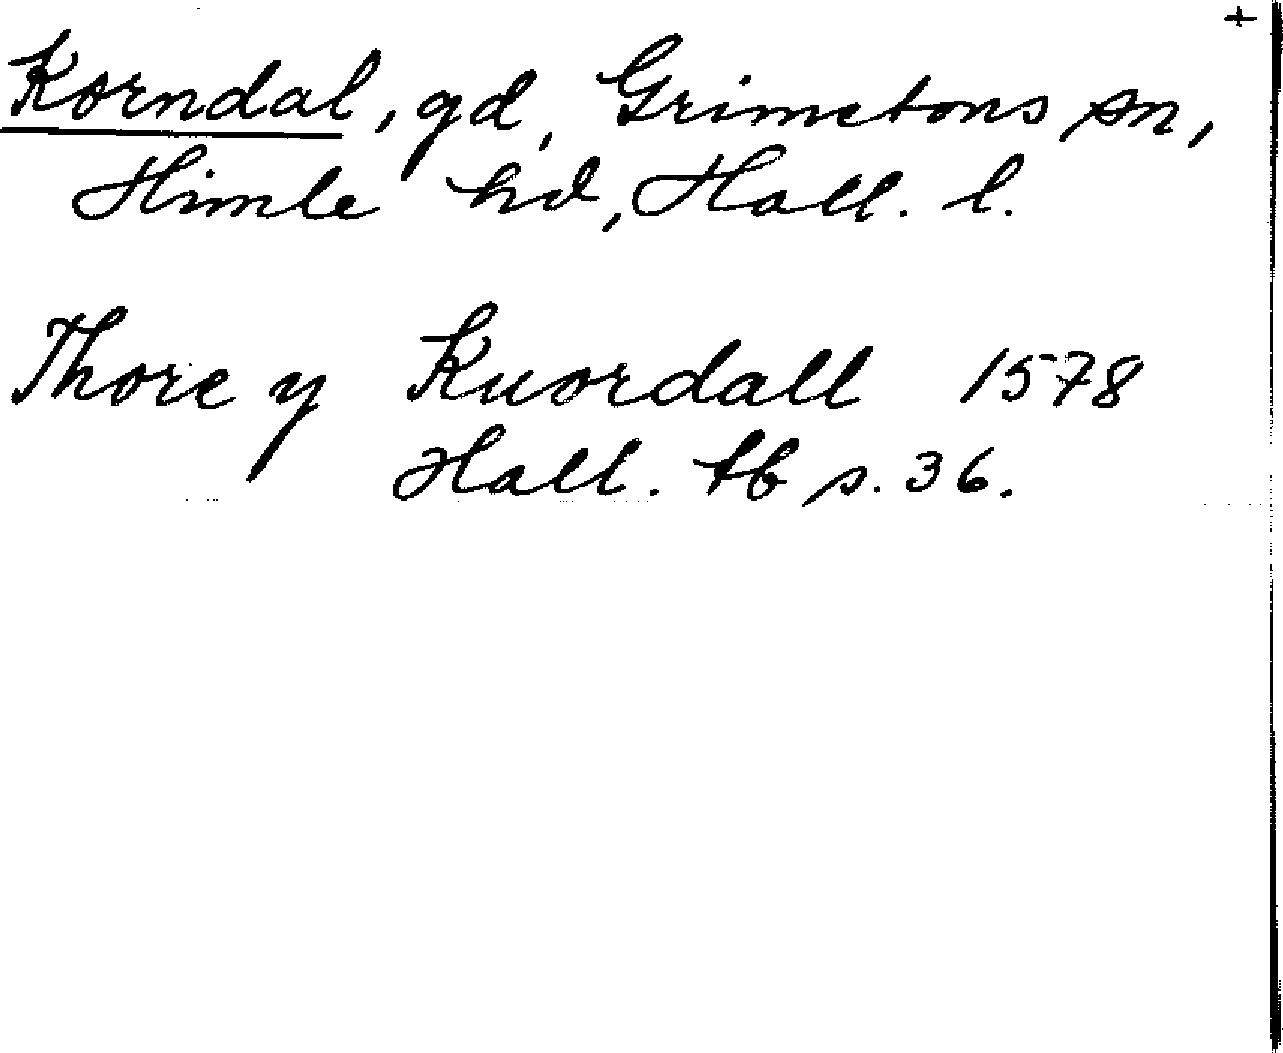 +
Korndal, gd, Grimetons sn,
Himle hd, Hall. l.
Thore y Kuordall 1578
Hall. tb s. 36.